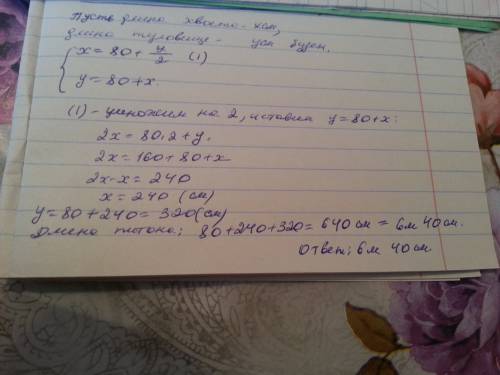 Пусть длина хвоста - x см,
длина туловища - y см будет.
{ x = 80 + y/2 (1)
y = 80 + x.
(1) - умножим на 2, и ставим y = 80 + x:
2x = 80·2 + y.
2x = 160 + 80 + x
2x - x = 240
x = 240 (см)
y = 80 + 240 = 320 (см)
Длина питона: 80 + 240 + 320 = 640 см = 6м 40 см.
Ответ: 6м 40 см.